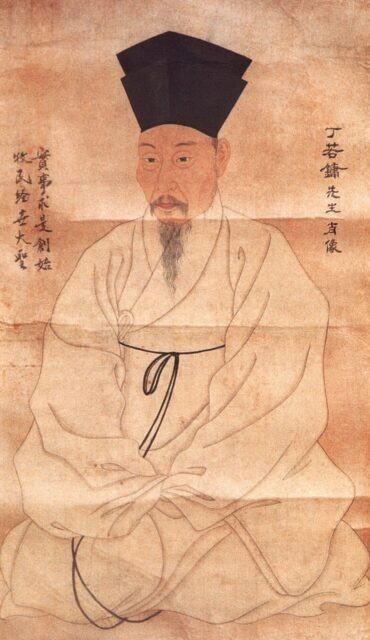 丁若鏞先生肖像
實事求是創始
牧民經世大聖